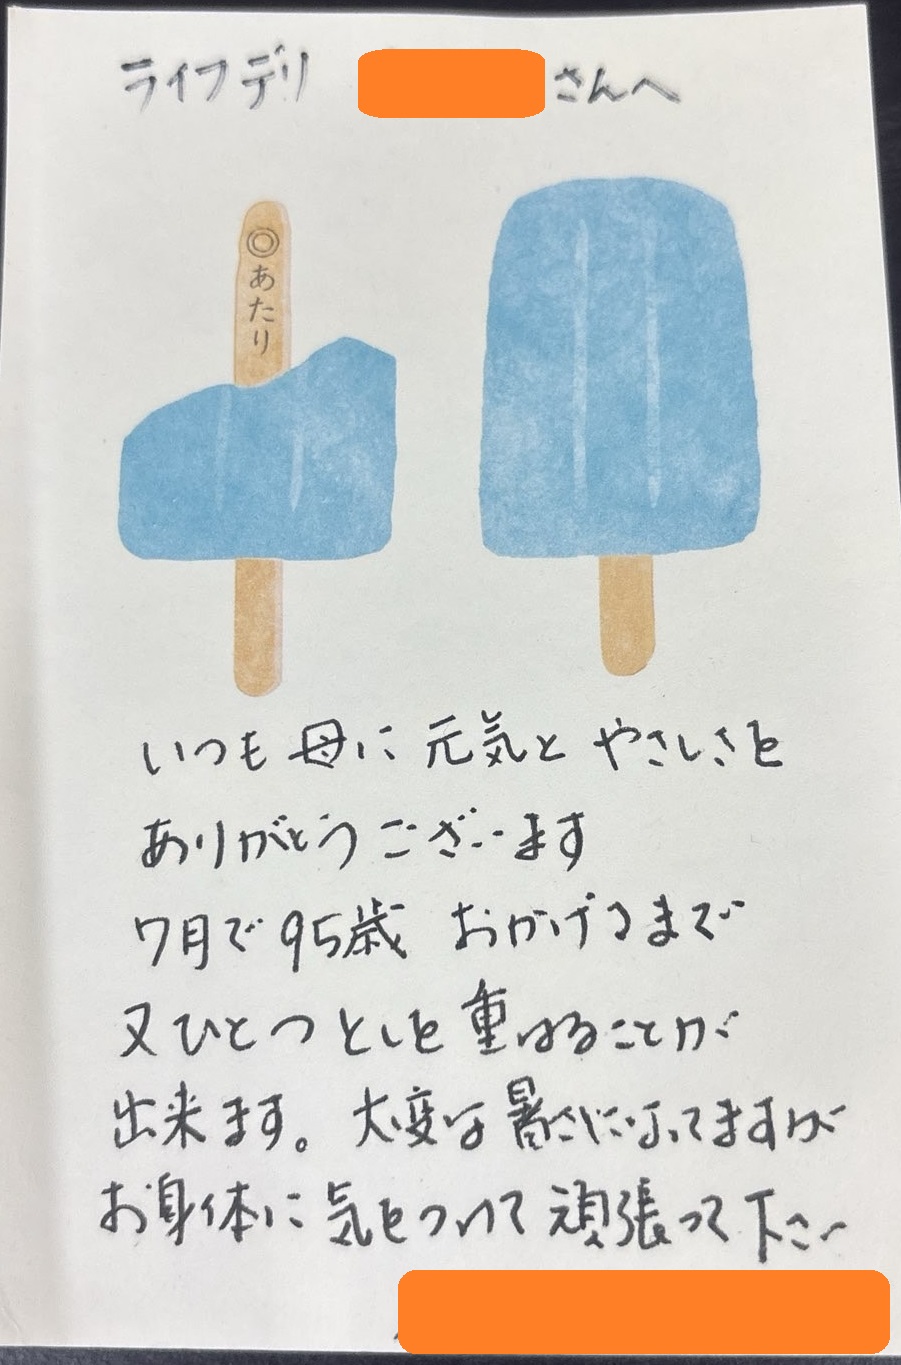 ライフデリ さんへ
◎あたり
いつも母に元気とやさしさを
ありがとうございます
7月で95歳 おかげさまで
又ひとつとしを重ねることが
出来ます。大変な暑さになってますが
お身体に気をつけて頑張って下さい